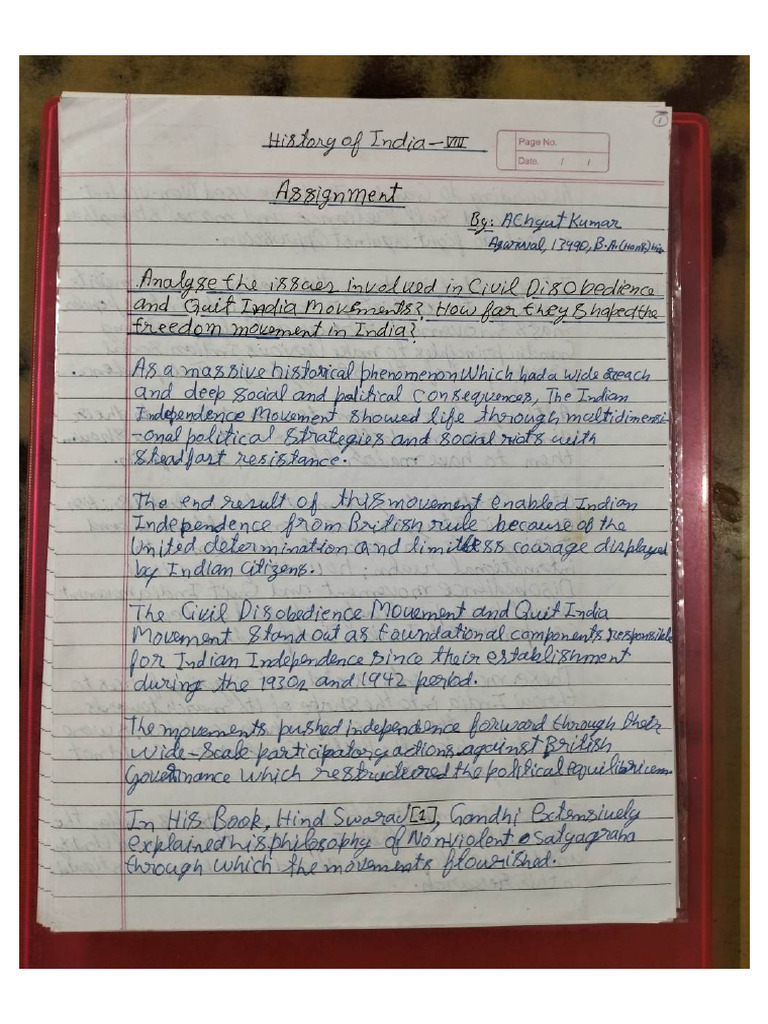 1
History of India - VIII
Page No.
Date. / /
Assignment
By: Achyut Kumar
Agarwal, 13490, B.A.(Hons) His
Analyse the issues involved in Civil Disobedience
and Quit India Movements? How far they shaped the
freedom movement in India?
As a massive historical phenomenon which had a wide reach
and deep social and political consequences, The Indian
Independence Movement showed life through multidimensi
-onal political strategies and social riots with
steadfast resistance.
The end result of this movement enabled Indian
Independence from British rule because of the
united determination and limitless courage displayed
by Indian citizens.
The Civil Disobedience Movement and Quit India
Movement stand out as foundational components responsible
for Indian Independence since their establishment
during the 1930s and 1942 period.
The movements pushed independence forward through their
wide-scale participatory actions against British
Governance which restructured the political equilibrium.
In His Book, Hind Swaraj[1], Gandhi extensively
explained his philosophy of Nonviolent satyagraha
through which the movements flourished.